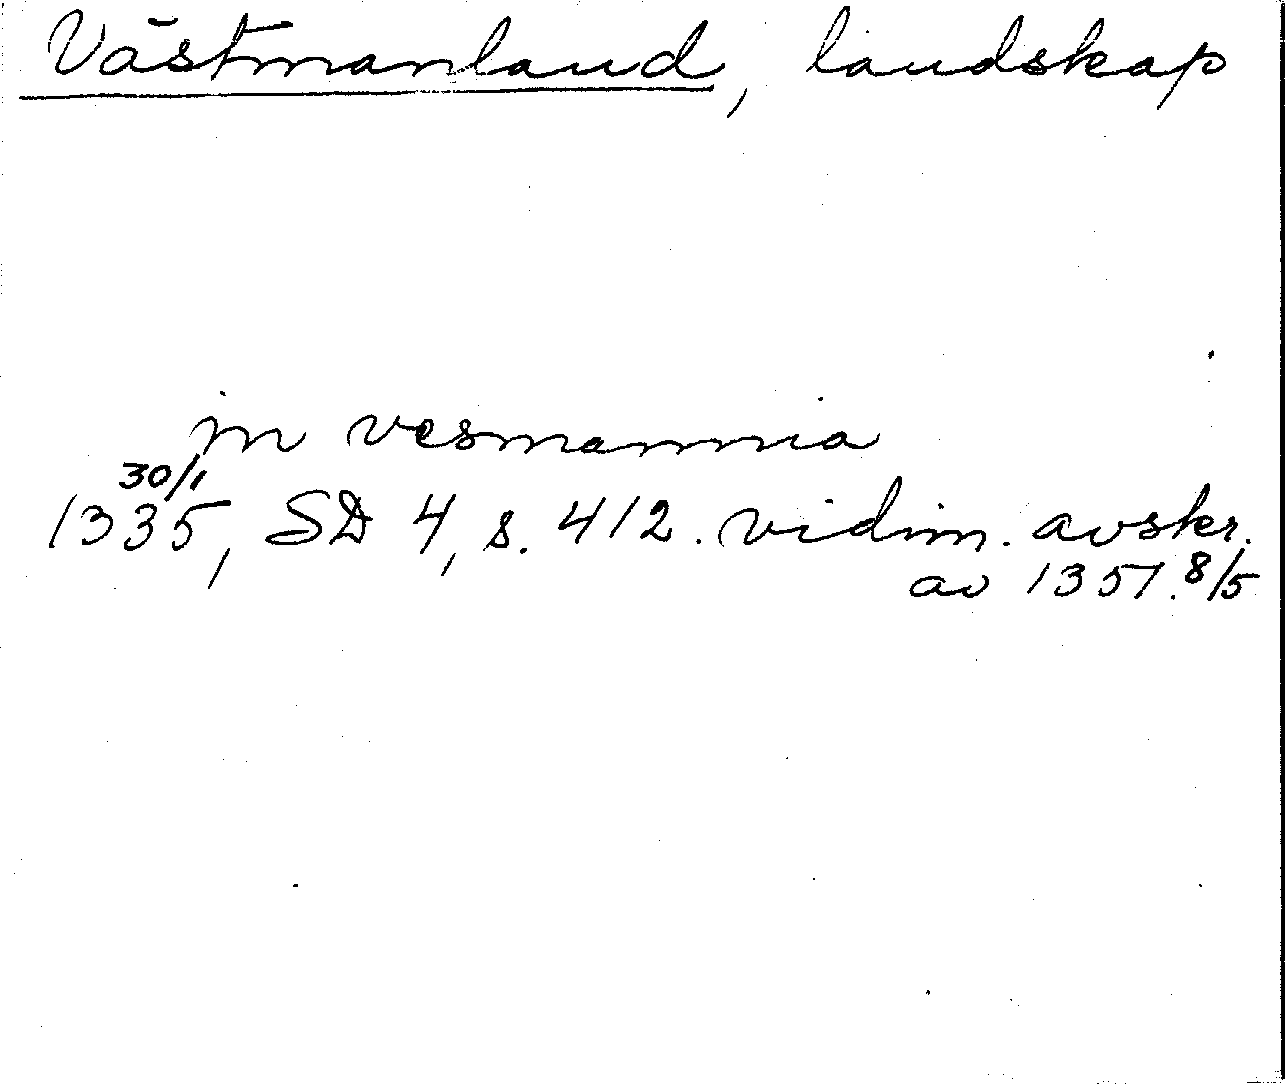 Västmanland, landskap
jn vesmannia
30/1
1335, SD 4, s. 412. vidim. avskr.
av 1351. 8/5